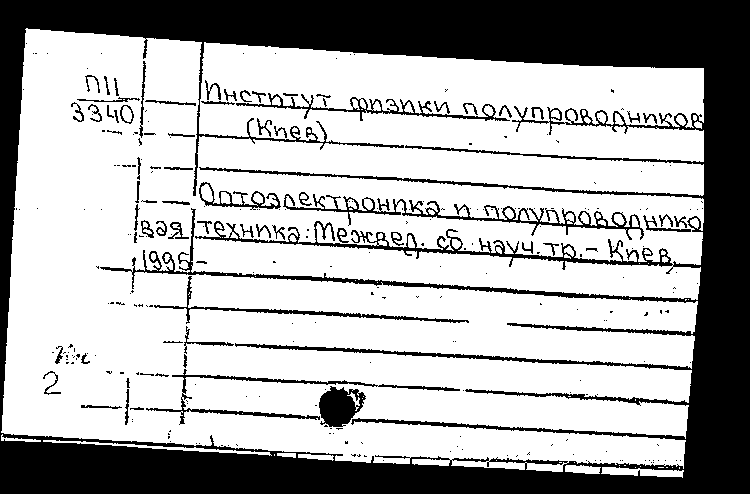 П11
3340
Институт физики полупроводников
(Киев)
Оптоэлектроника и полупроводнико
вая техника: Межвед. сб. науч. тр. – Киев,
1995 –
2